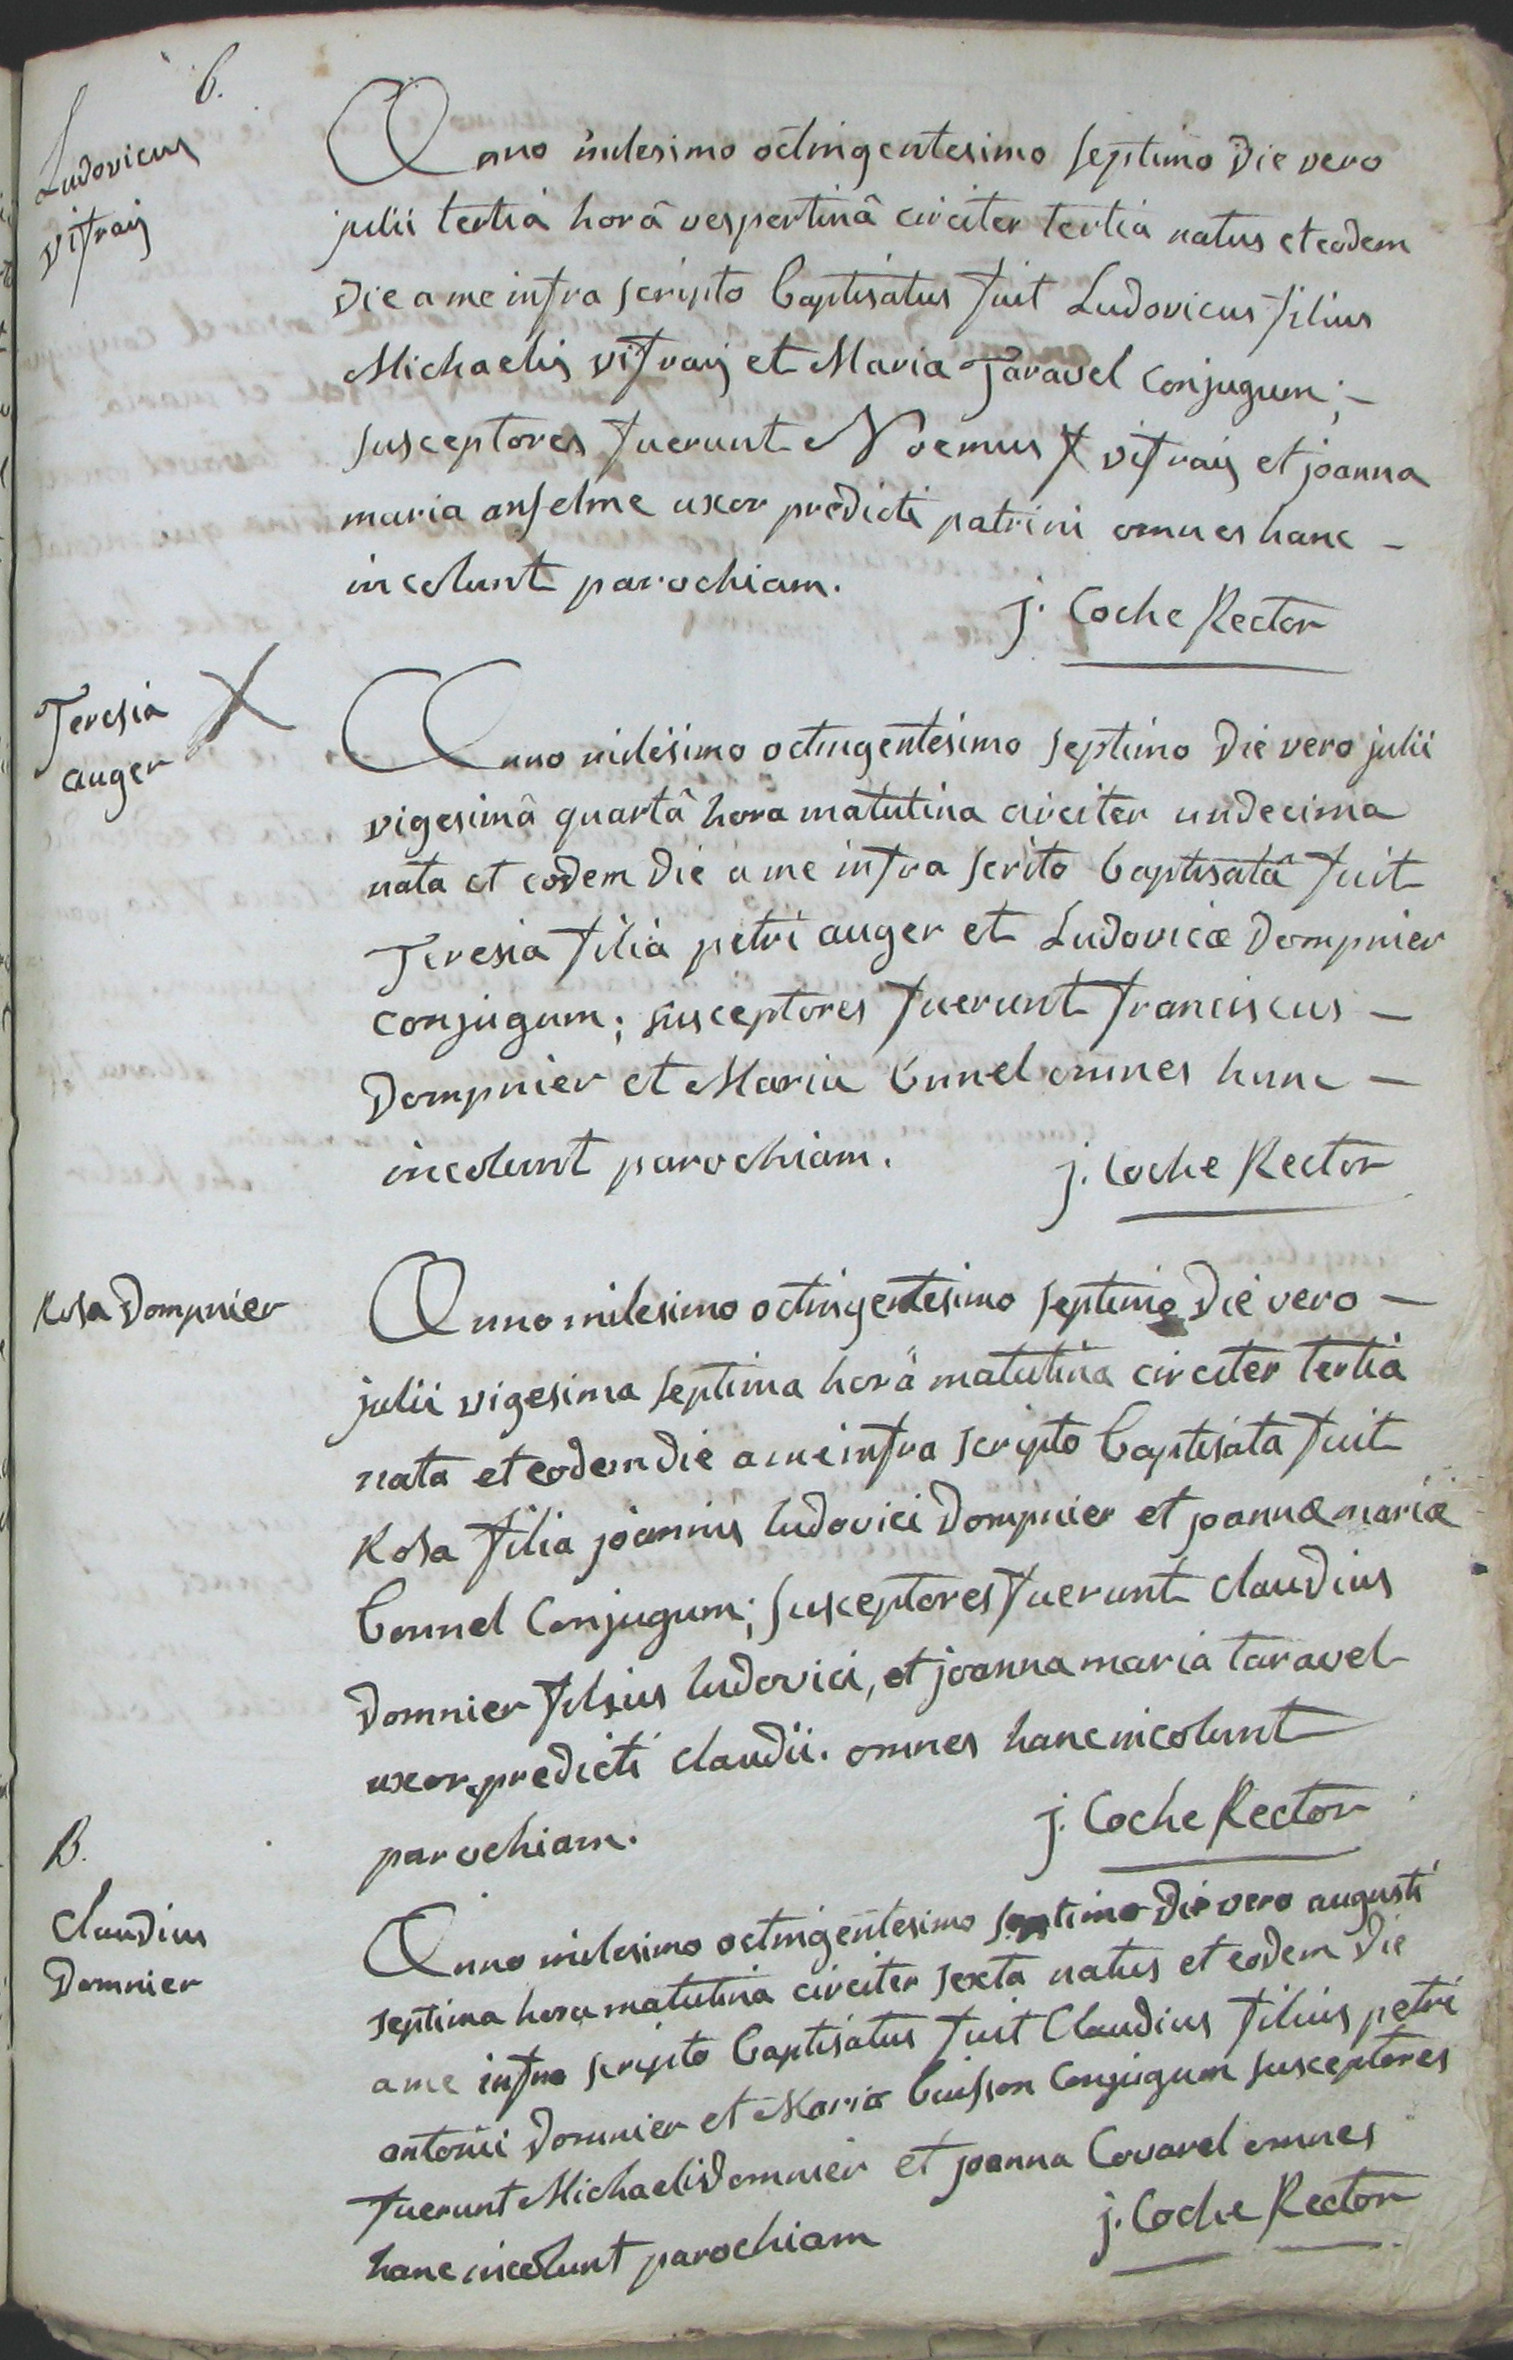 6.
Ludovicus
vifraij
Anno milesimo octingentesimo septimo die vero
julii tertia horâ vespertinâ circiter tertia natus et eodem
die a me infra scripto baptisatus fuit Ludovicus filius
Michaelis vifraij et Maria Taravel conjugum; –
susceptores fuerunt Noemus vifraij et joanna
maria anselme uxor predicti patrini omnes hanc –
incolunt parochiam.
j. Coche Rector
Teresia
auger
Anno milésimo octingentésimo septimo die vero julii
vigesimâ quartâ hora matutina circiter undecima
nata et eodem die a me infra scrito baptisatâ fuit
Teresia filia petri auger et Ludovicæ Dompnier
conjugum; susceptores fuerunt franciscus –
Dompnier et Maria bunel omnes hanc –
incolunt parochiam.
j. Coche Rector
Rosa Dompnier
Anno milesimo octingentesimo septimo die vero –
julii vigesima septima horâ matutina circiter tertia
nata et eodem die a me infra scripto baptisata fuit
Rosa filia joannis ludovici Dompnier et joannæ mariæ
bonnel Conjugum; susceptores fuerunt claudius
Domnier filius ludovici, et joanna maria taravel
uxor predicti claudii. omnes hanc incolunt
parochiam.
j. Coche Rector
B.
Claudius
Domnier
Anno milesimo octingentesimo septimo die vero augusti
septima hora matutina circiter sexta natus et eodem die
a me infra scripto baptisatus fuit Claudius filius petri
antonii Domnier et Maria buisson Conjugum susceptores
fuerunt Michaelis Domnier et joanna Covarel omnes
hanc incolunt parochiam
j. Coche Rector